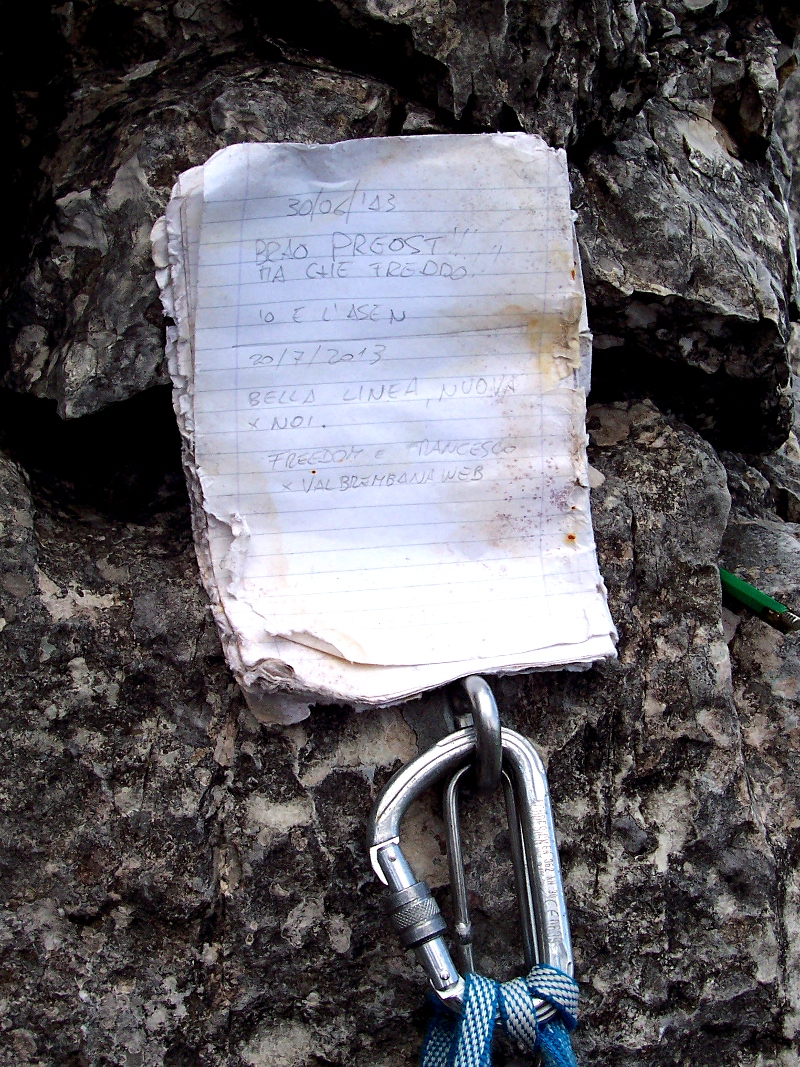 30/06/'13
BRAO PREOST!!!...
MA CHE FREDDO
IO E L'ASEN
20/7/2013
BELLA LINEA, NUOVA
X NOI.
FREEDOM e FRANCESCO
X VALBREMBANAWEB